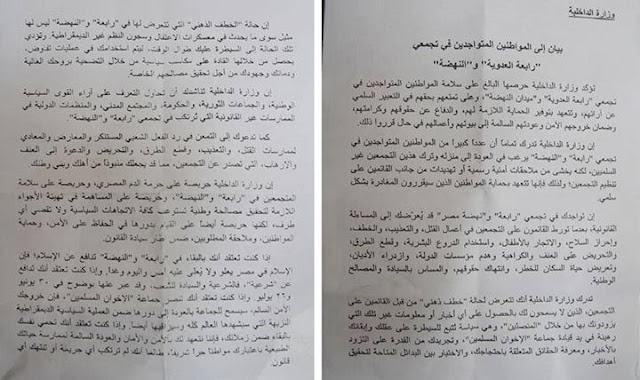 وزارة الداخلية
بيان إلى المواطنين المتواجدين في تجمعي
"رابعة العدوية" و"النهضة"
تؤكد وزارة الداخلية حرصها البالغ على سلامة المواطنين المتواجدين في
تجمعي "رابعة العدوية" و"ميدان النهضة"، وعلى تمتعهم بحقهم في التعبير السلمي
عن آرائهم، وتتعهد بتوفير الحماية اللازمة لهم، والدفاع عن حقوقهم وكرامتهم،
وضمان خروجهم الآمن وعودتهم السالمة إلى بيوتهم وأعمالهم في حال قرروا ذلك.
إن وزارة الداخلية تدرك تماماً أن عدداً كبيراً من المواطنين المتواجدين في
تجمعي "رابعة" و"النهضة" يرغب في العودة إلى منزله وترك هذين التجمعين غير
السلميين، لكنه يخشى من ملاحقات أمنية رسمية أو تهديدات من جانب القائمين على
تنظيم التجمعين؛ ولذلك فإنها تتعهد بحماية المواطنين الذين سيقررون المغادرة بشكل
سلمي.
إن تواجدك في تجمعي "رابعة" و"نهضة مصر" قد يُعرّضك إلى المساءلة
القانونية، بعدما تورط القائمين على التجمعين في أعمال القتل، والتعذيب، والخطف،
وإحراز السلاح، والاتجار بالأطفال، واستخدام الدروع البشرية، وقطع الطرق،
والتحريض على العنف والكراهية وهدم مؤسسات الدولة، وازدراء الأديان،
وتعريض حياة السكان للخطر، وانتهاك حقوقهم، والمساس بالسيادة والمصالح
الوطنية.
تدرك وزارة الداخلية أنك تتعرض لحالة "خطف ذهني" من قبل القائمين على
التجمعين، الذين لا يسمحون لك بالحصول على أي أخبار أو معلومات غير تلك التي
يزودونك بها من خلال "المنصتين"، وهي سياسة تتبع للسيطرة على عقلك وإبقائك
رهينة في يد قيادة جماعة "الإخوان المسلمين"، وتجريدك من القدرة على التزود
بالأخبار، ومعرفة الحقائق المتعلقة باحتجاجك، والاختيار بين البدائل المتاحة لتحقيق
أهدافك.
إن حالة "الخطف الذهني" التي تتعرض لها في "رابعة" و"النهضة" ليس لها
مثيل سوى ما يحدث في معسكرات الاعتقال وسجون النظم غير الديمقراطية. وتؤدي
تلك الحالة إلى السيطرة عليك طوال الوقت، ليتم استخدامك في عمليات تفاوض،
يحصل من خلالها القادة على مكاسب سياسية من خلال التضحية بروحك الغالية
ودمائك وجهودك من أجل تحقيق مصالحهم الخاصة.
إن وزارة الداخلية تناشدك أن تحاول التعرف على آراء القوى السياسية
الوطنية، والجماعات الثورية، والحكومة، والمجتمع المدني، والمنظمات الدولية في
الممارسات غير القانونية التي تُرتكب في تجمعي "رابعة" و"النهضة".
كما تدعوك إلى التمعن في رد الفعل الشعبي المستنكر والمعارض والمعادي
لممارسات القتل، والتعذيب، وقطع الطرق، والتحريض والدعوة إلى العنف
والإرهاب، التي تصدر عن التجمعين، مما قد يجعلك منبوذاً من أهلك وبني وطنك.
إن وزارة الداخلية حريصة على حرمة الدم المصري، وحريصة على سلامة
المتجمعين في "رابعة" و"النهضة"، وحريصة على المساهمة في تهيئة الأجواء
اللازمة لتحقيق مصالحة وطنية تستوعب كافة الاتجاهات السياسية ولا تقصي أي
طرف، لكنها حريصة أيضاً على القيام بدورها في الحفاظ على الأمن، وحماية
المواطنين، وملاحقة المطلوبين، ضمن إطار سيادة القانون.
إذا كنت تعتقد أنك بالبقاء في "رابعة" و"النهضة" تدافع عن الإسلام؛ فإن
الإسلام في مصر يعلو ولا يُعلى عليه أمس واليوم وغداً. وإذا كنت تعتقد أنك تدافع
عن "شرعية"، فالشرعية والسيادة للشعب، وقد عبر عنها بوضوح في ٣٠ يونيو
و٢٦ يوليو. وإذا كنت تعتقد أنك تنصر جماعة "الإخوان المسلمين"، فإن خروجك
الآمن السالم، سيسمح للجماعة بالعودة إلى دورها ضمن العملية السياسية الديمقراطية
النزيهة التي سيشهدها العالم كله وسيراقبها أيضاً. وإذا كنت تعتقد أنك تحمي نفسك
بالبقاء ضمن زملائك، فإننا نتعهد لك بالأمن والأمان والعودة السالمة لممارسة حياتك
الطبيعية باعتبارك مواطناً حراً شريفاً، طالما أنك لم ترتكب أي جريمة أو تنتهك أي
قانون.